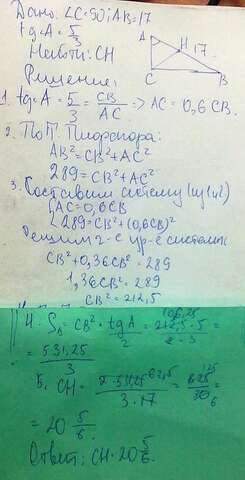 Дано: ∠C=90; AB=17
tg∠A=5/3
Найти: CH
A
H 17
C B
Решение:
1. tg∠A=5/3=CB/AC => AC=0,6CB.
2. По т. Пифагора:
AB²=CB²+AC²
289=CB²+AC²
3. Составим систему (из 1 и 2)
{AC=0,6CB
289=CB²+(0,6CB)²
CB²+0,36CB²=289
1,36CB²=289
CB²=212,5
4. S△=CB²·tgA/2=212,5·5/2·3=
=531,25/3
5. CH=2·531,25/3·17=625/30=
=20 5/6.
Ответ: CH=20 5/6.